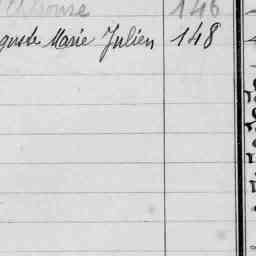 146
guste Marie Julien 148